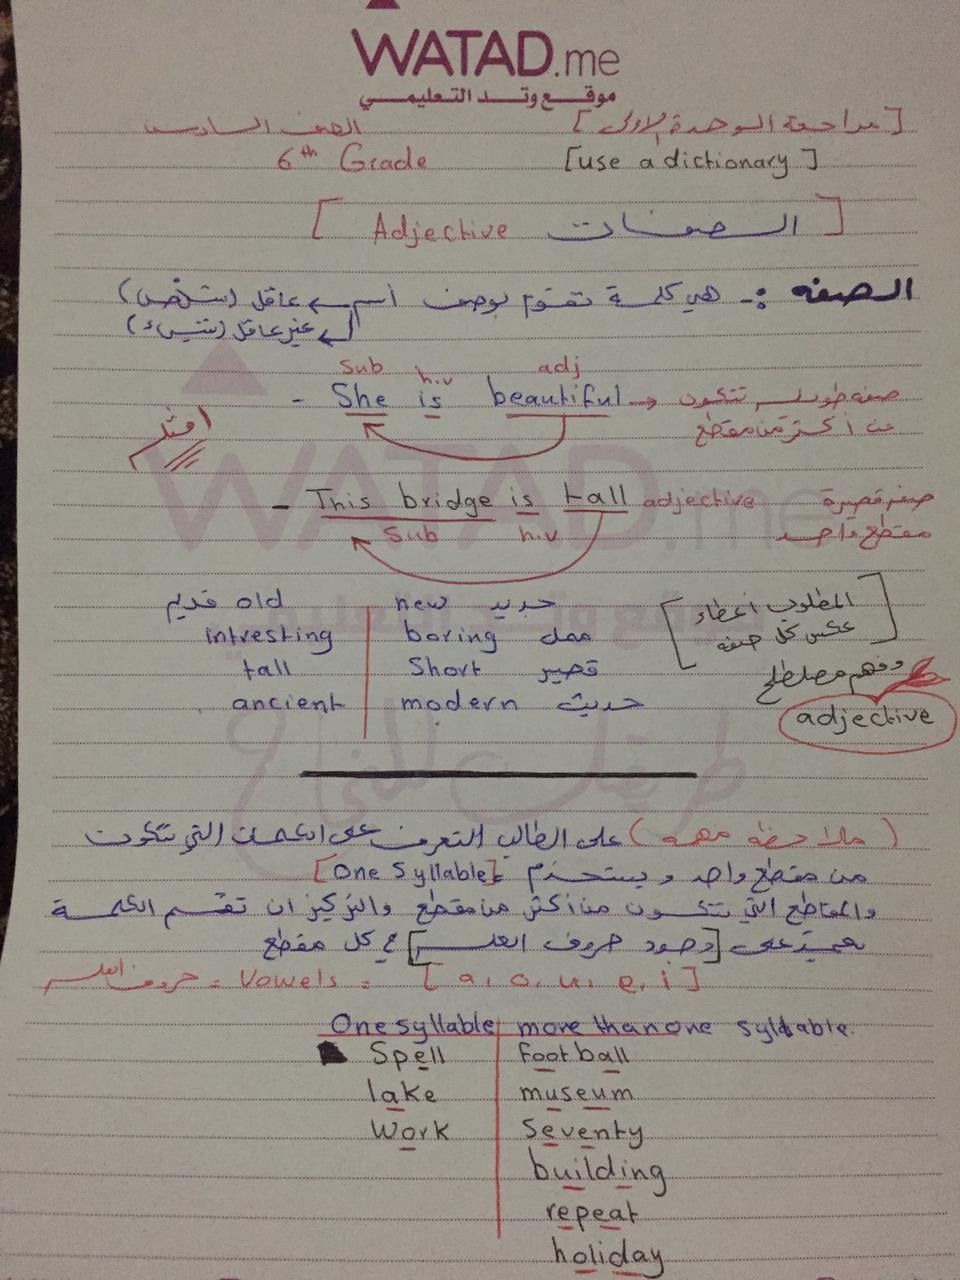 WATAD.me
موقع وتد التعليمي
[مراجعة الوحدة الاولى] الصف السادس
6th Grade [use a dictionary]
[الصفات Adjective]
الصفه :- هي كلمة تقوم بوصف أسم ← عاقل (شخص)
← غير عاقل (شيء)
Sub h.v adj
- She is beautiful → صفه طويله تتكون
من أكثر من مقطع
امثله
- This bridge is tall adjective صفه قصيرة
Sub h.v مقطع واحد
old قديم new جديد
intresting boring ممل
tall Short قصير
ancient modern حديث
[المطلوب أعطاء
عكس كل صفه]
وفهم مصطلح
adjective
(ملاحظة مهمه) على الطالب التعرف على الكلمات التي تتكون
من مقطع واحد ويستخدم [One Syllable]
والمقاطع التي تتكون من أكثر من مقطع والتركيز ان تقسم الكلمة
يعتمد على [وجود حروف العله] في كل مقطع
حروف العله = Vowels = [a, o, u, e, i]
One syllable more than one syllable.
Spell football
lake museum
Work Seventy
building
repeat
holiday